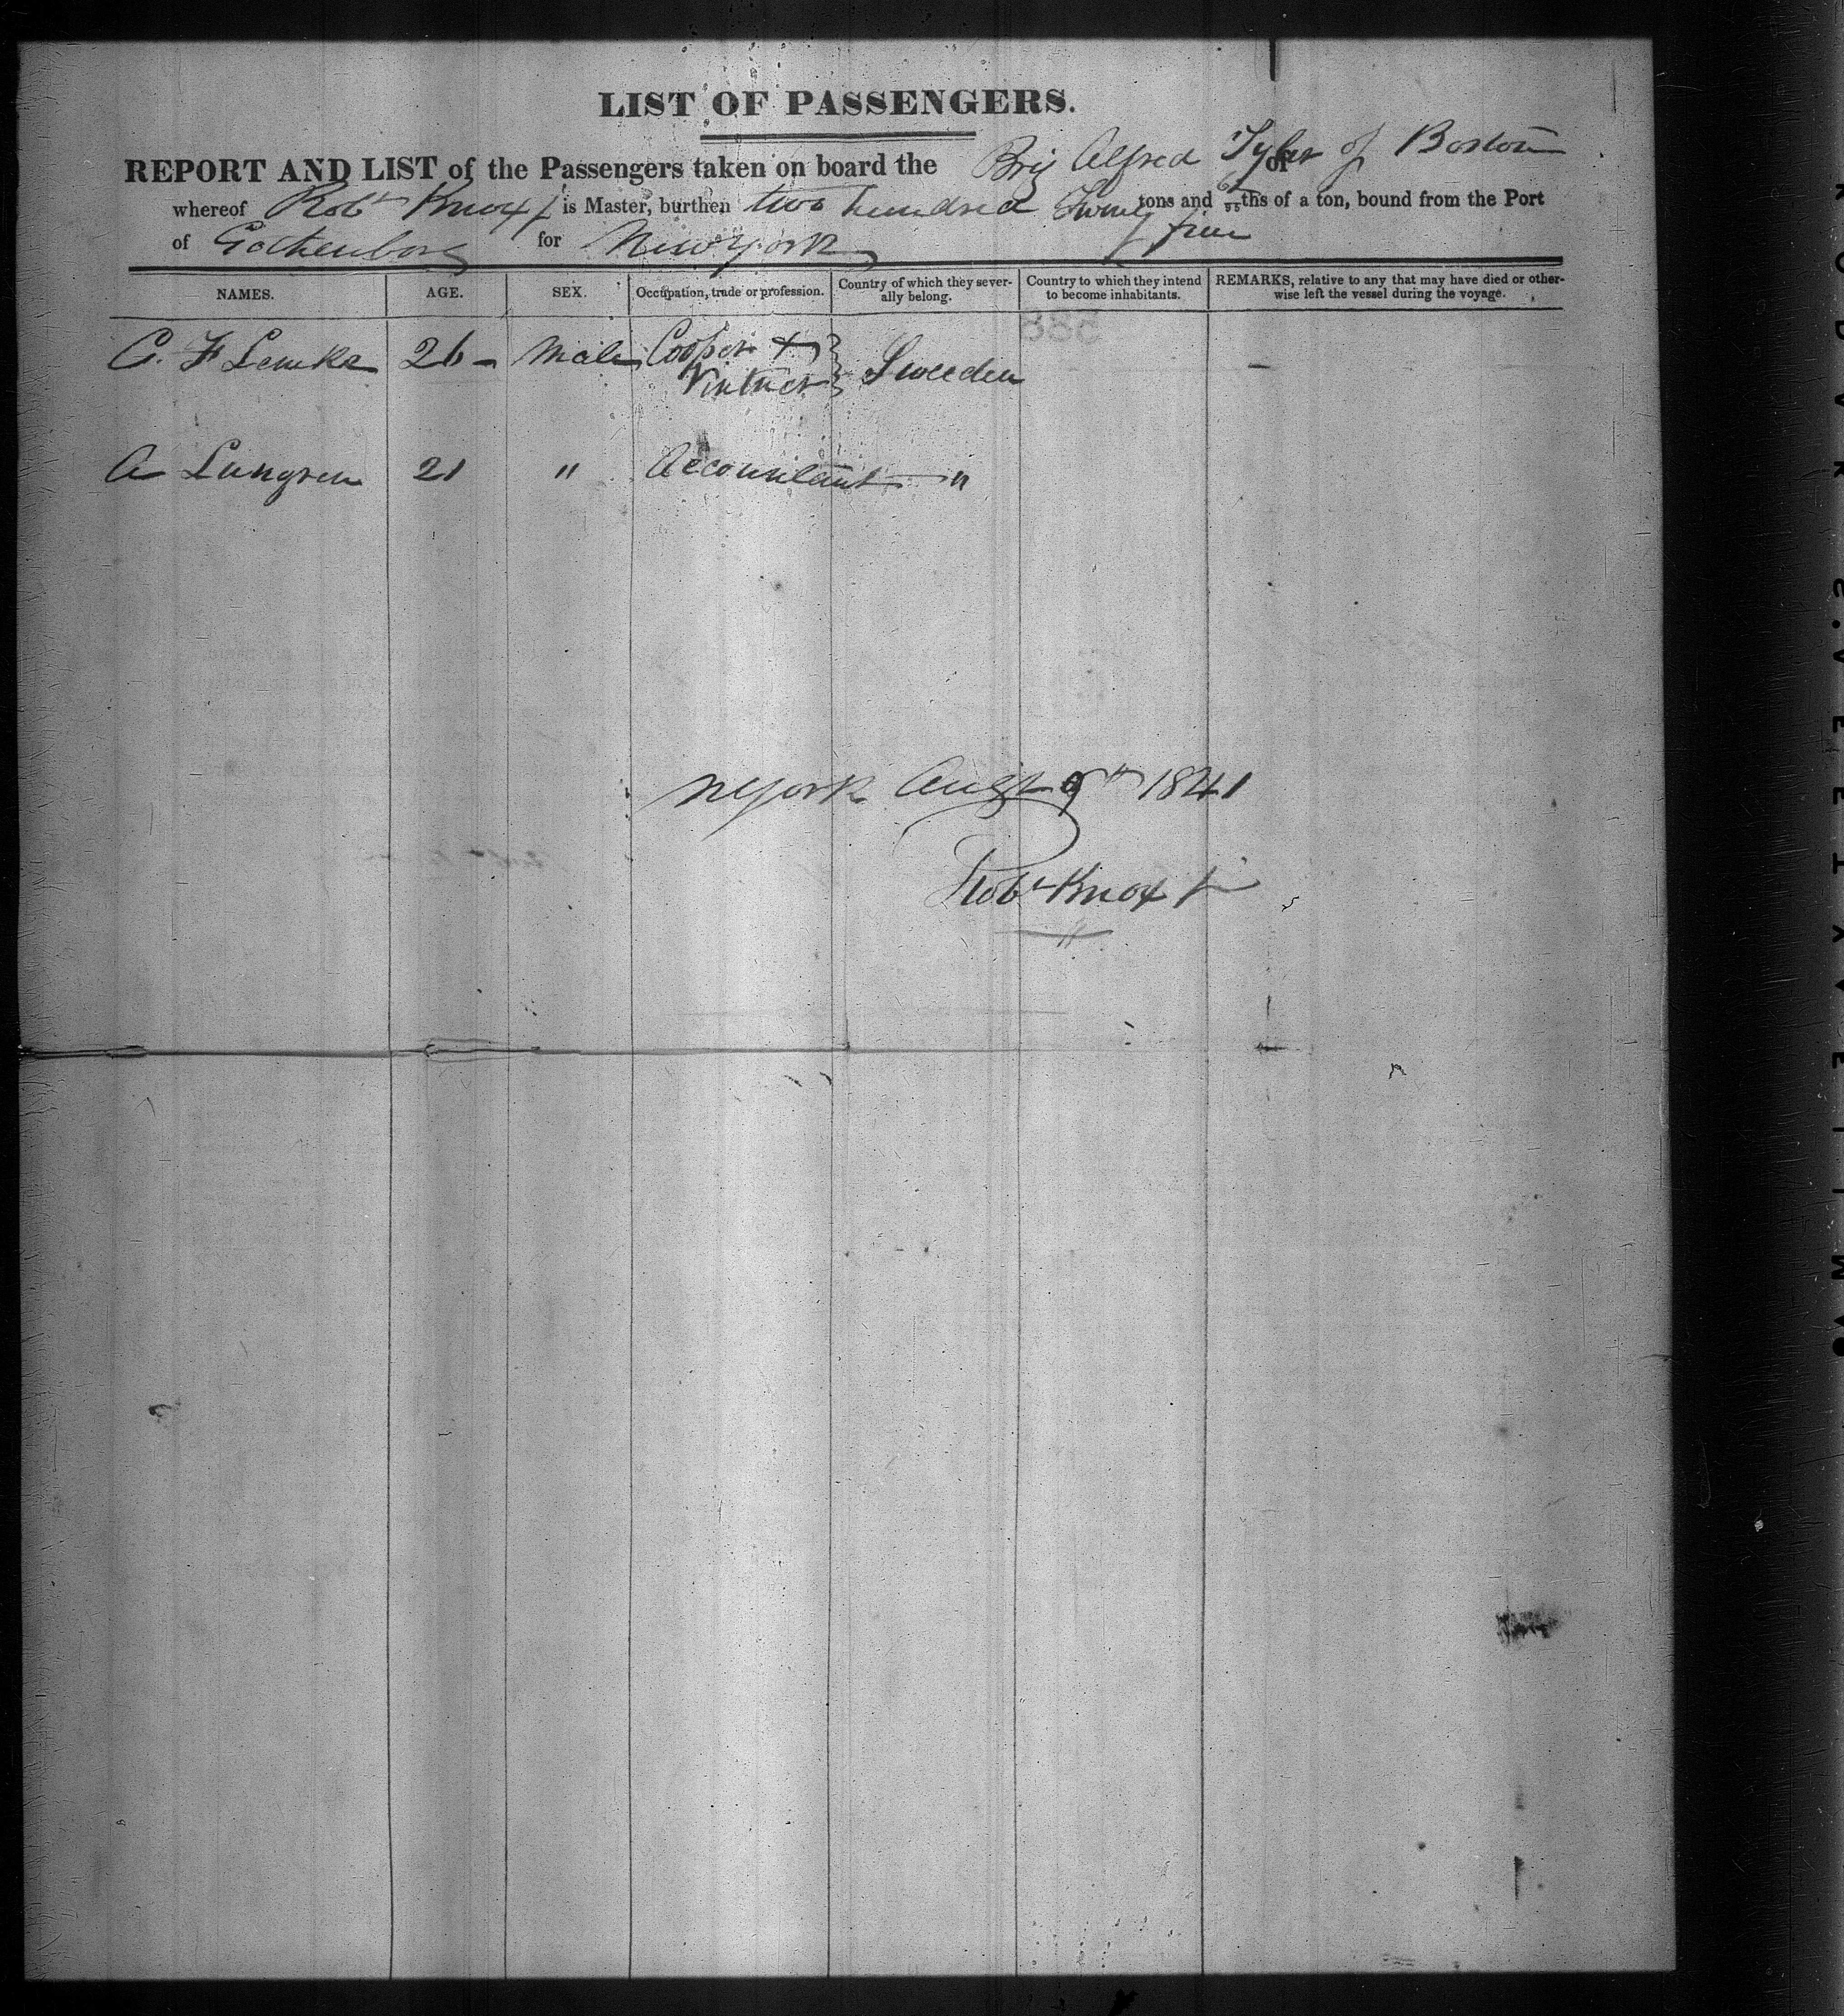 LIST OF PASSENGERS.
REPORT AND LIST of the Passengers taken on board the Brig Alfred Tyler of of Boston
whereof Robt Knox Jr is Master, burthen two hundred Twenty five tons and 61/95ths of a ton, bound from the Port
of Gothenborg for New York
NAMES. AGE. SEX. Occupation, trade or profession. Country of which they severally belong. Country to which they intend to become inhabitants. REMARKS, relative to any that may have died or otherwise left the vessel during the voyage.
588
C. F Lemke 26 - Male Cooper + Vintner Sweeden -
A Lungren 21 " Accountant "
NYork Augt 9th 1841
Robt Knox Jr